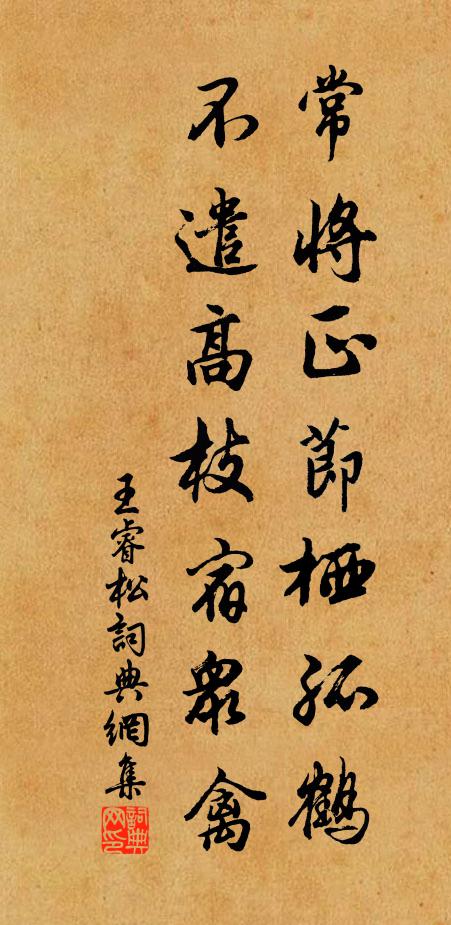 常將正節栖孤鶴
不遣高枝宿眾禽
王睿松詞典網集
詞典網印